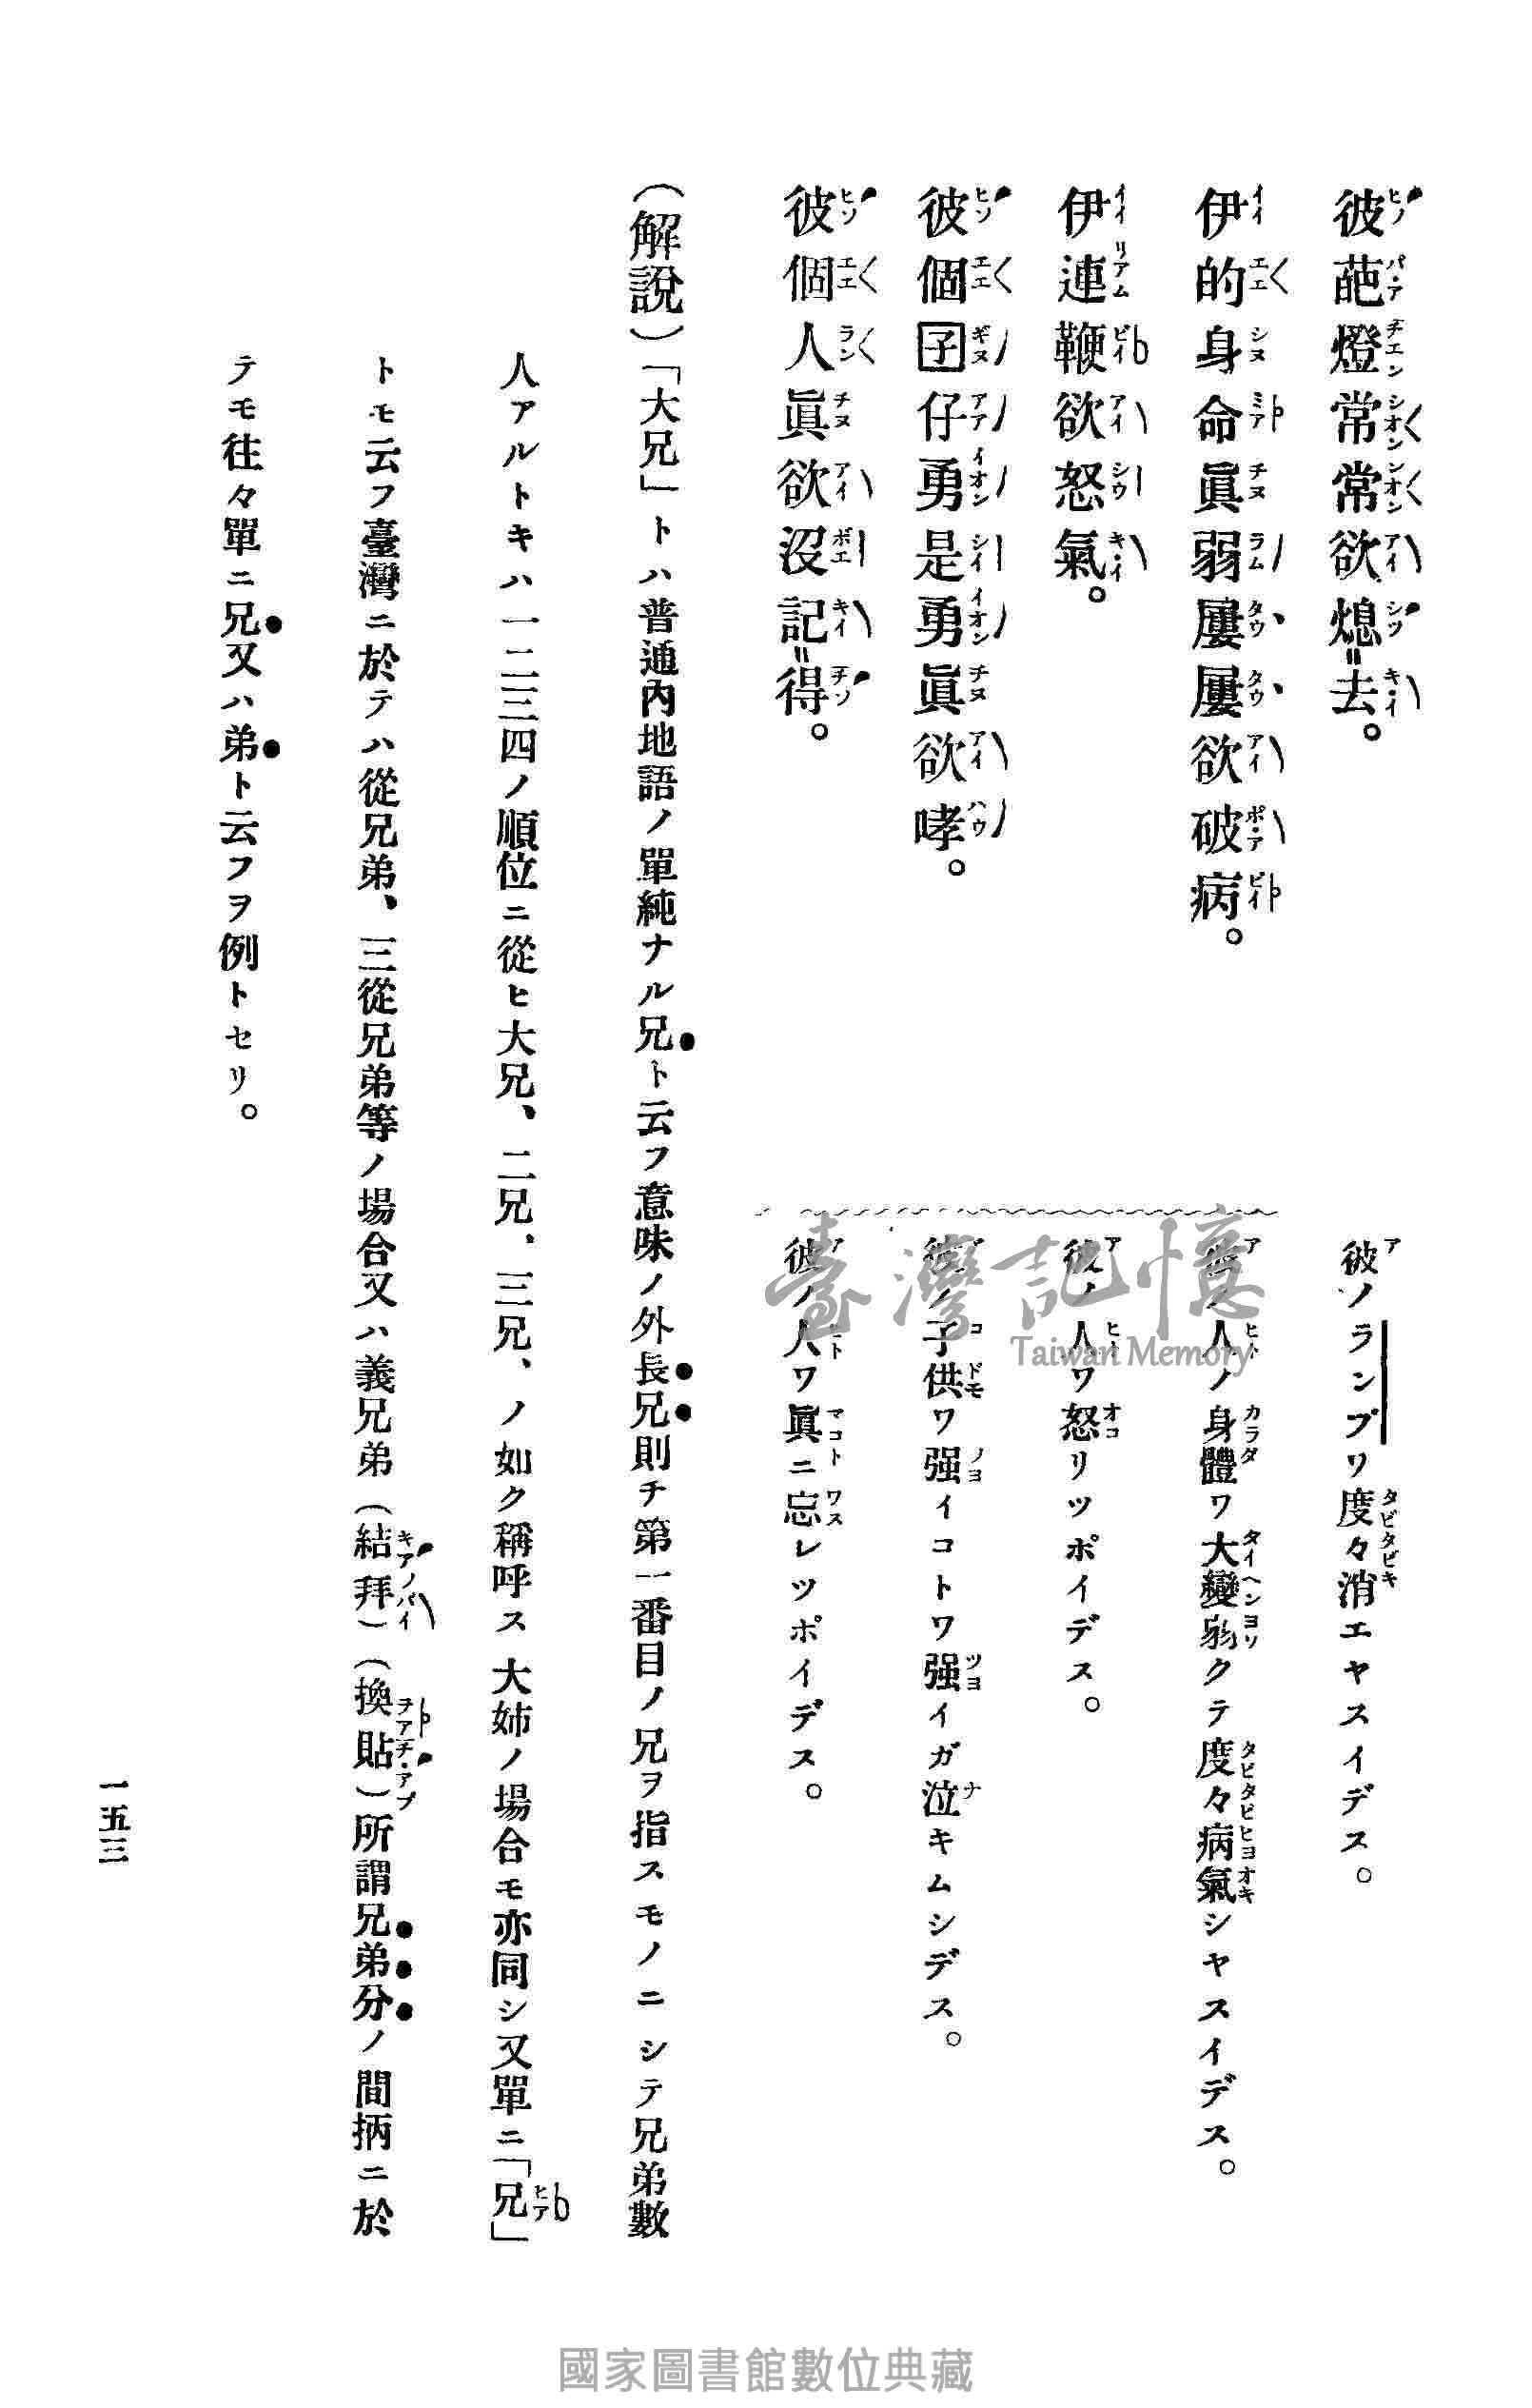 彼葩燈常常欲熄〃去。
彼ノランプワ度々消エヤスイデス。
伊的身命眞弱屢屢欲破病。
人ノ身體ワ大變弱クテ度々病氣シヤスイデス。
伊連鞭欲怒氣。
彼ノ人ワ怒リツポイデス。
彼個囝仔勇是勇眞欲哮。
彼ノ子供ワ强イコトワ强イガ泣キムシデス。
彼個人眞欲沒記〃得。
彼ノ人ワ眞ニ忘レツポイデス。
(解說)「大兄」トハ普通內地語ノ單純ナル兄ト云フ意味ノ外長兄則チ第一番目ノ兄ヲ指スモノニシテ兄弟數
人アルトキハ一二三四ノ順位ニ從ヒ大兄、二兄、三兄、ノ如ク稱呼ス大姉ノ場合モ亦同シ又單ニ「兄」
トモ云フ臺灣ニ於テハ從兄弟、三從兄弟等ノ場合又ハ義兄弟(結拜)(換貼)所謂兄弟分ノ間柄ニ於
テモ往々單ニ兄又ハ弟ト云フヲ例トセリ。
一五三
臺灣記憶
Taiwan Memory
國家圖書館數位典藏